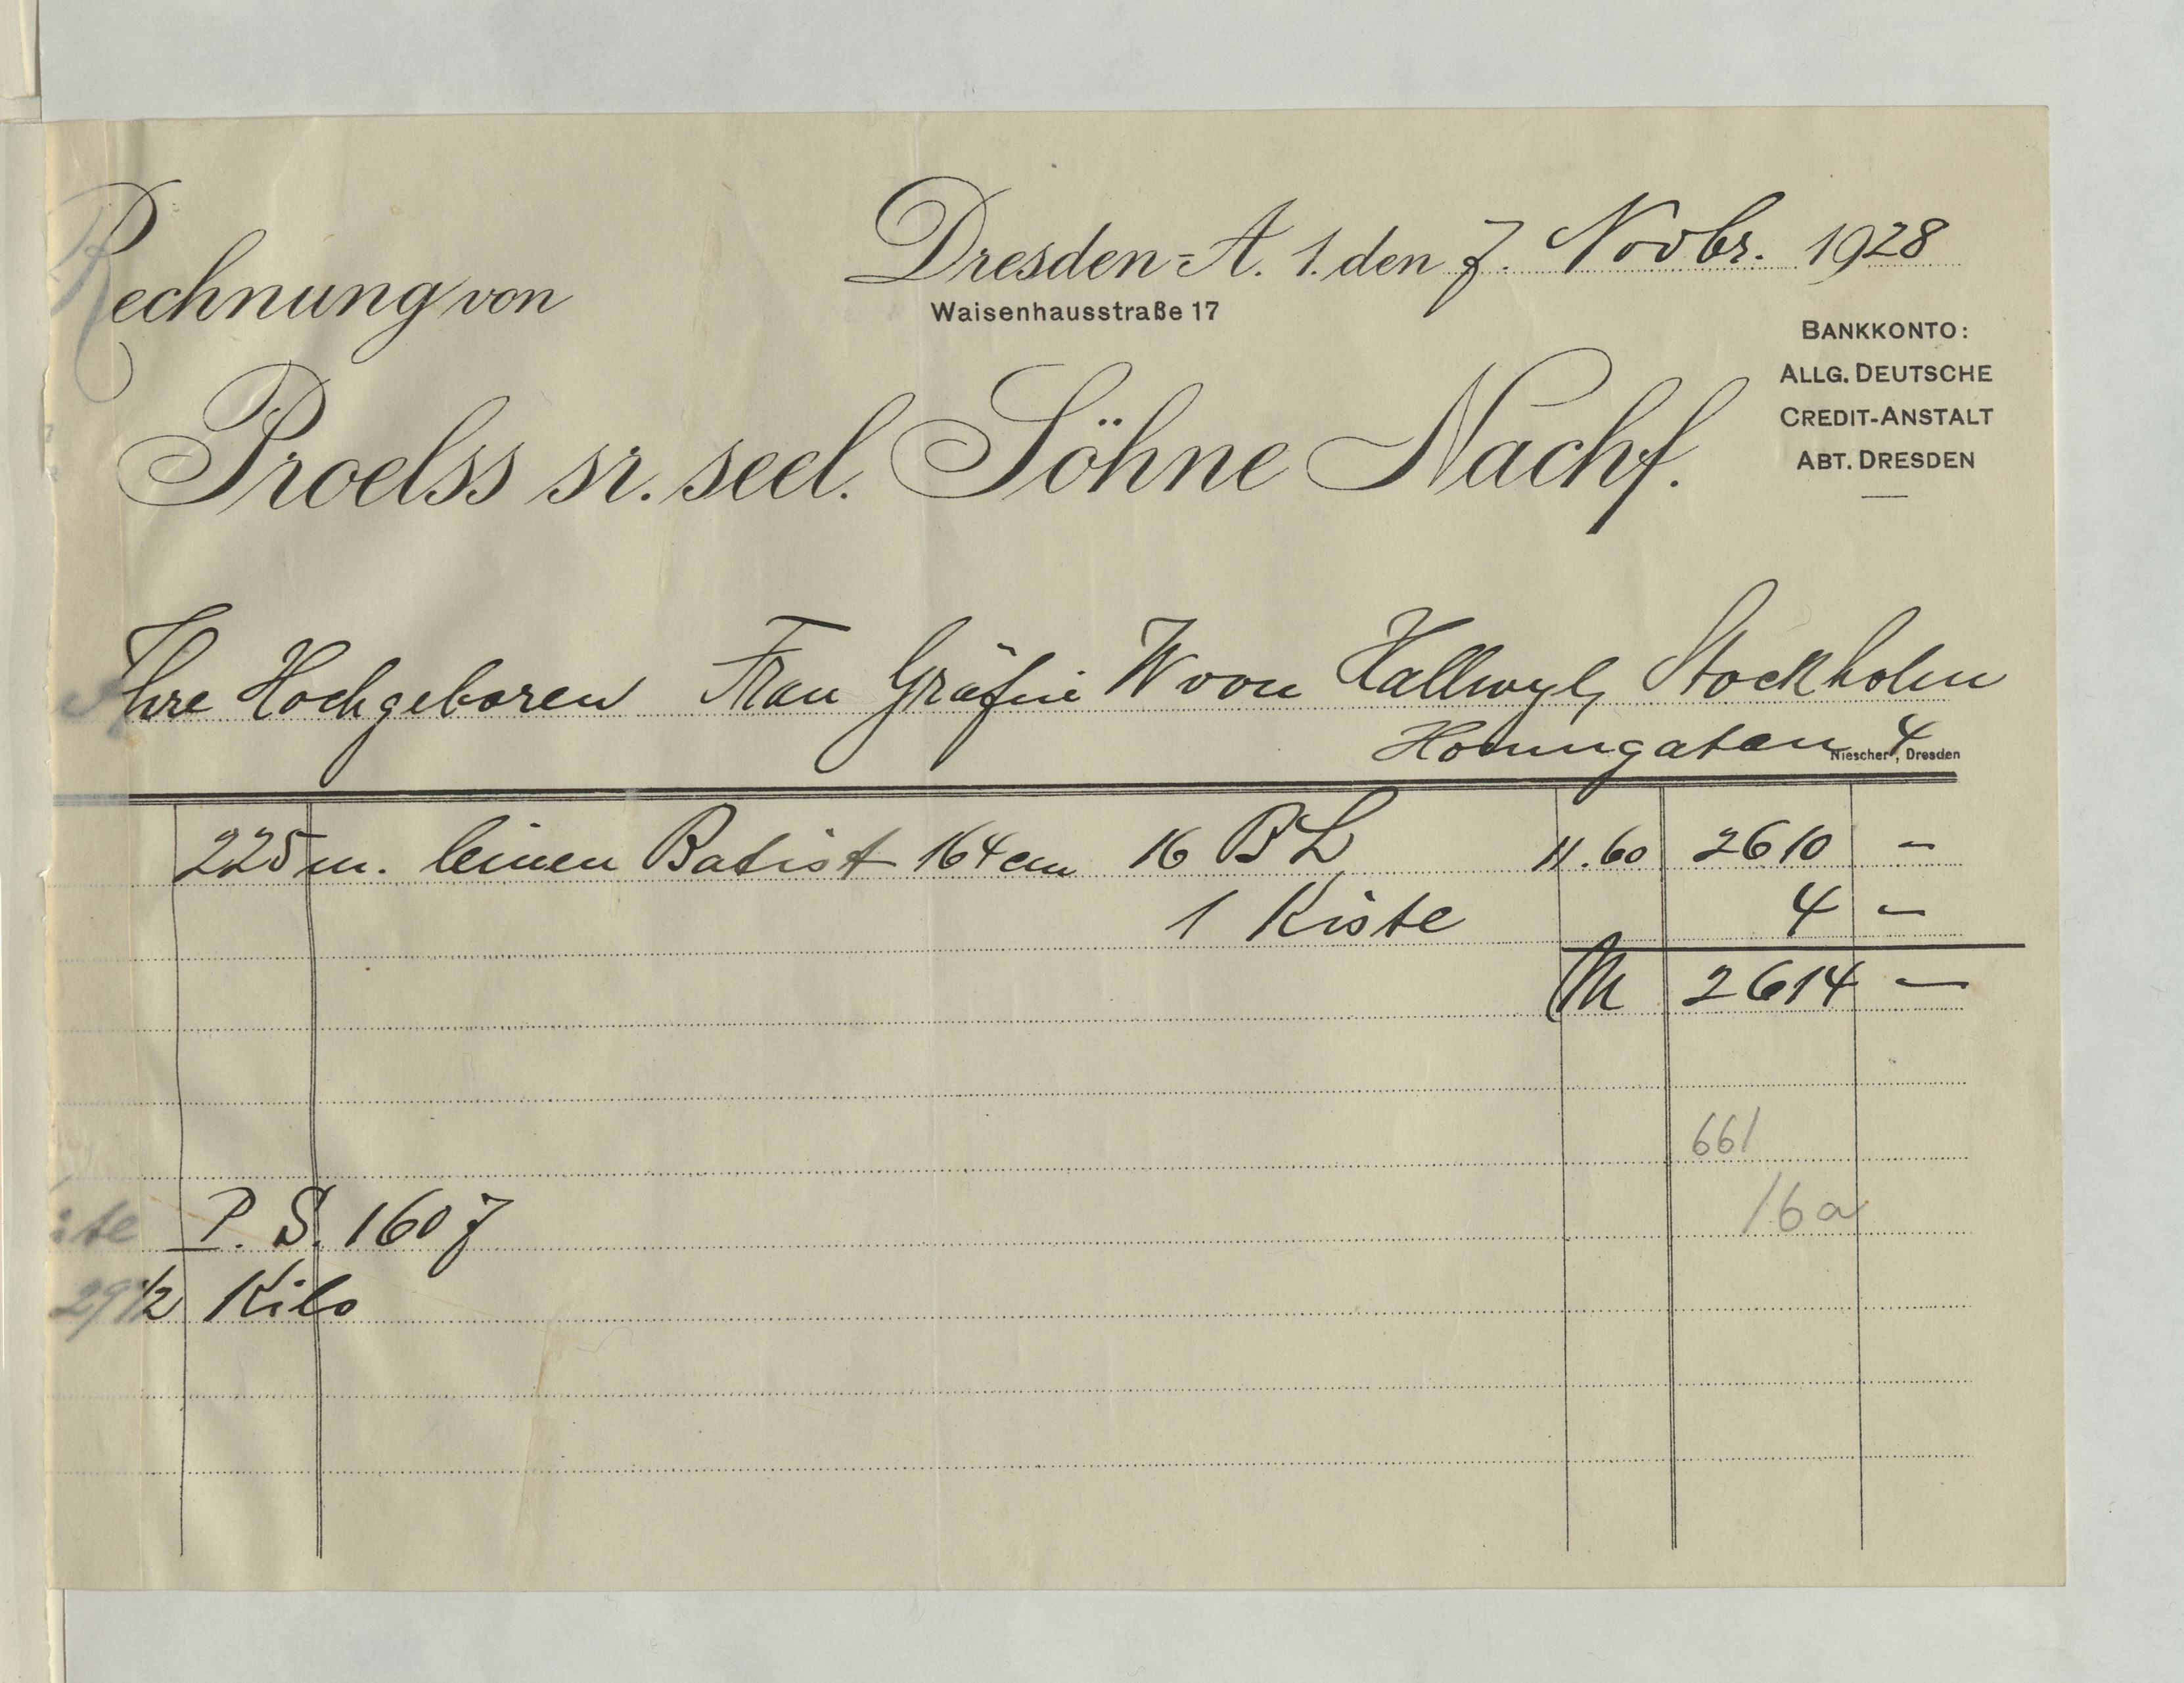 Rechnung von
Dresden-A. 1. den 7. Novbr. 1928
Waisenhausstraße 17
BANKKONTO:
ALLG. DEUTSCHE
CREDIT-ANSTALT
ABT. DRESDEN
Proelss sr. seel. Söhne Nachf.
Ihre Hochgeboren Frau Gräfin W von Hallwyl, Stockholm
4
Niescher, Dresden
225 m. leinen Batist 164 cm 16 BL 11.60 2610 -
1 Kiste 4 -
M 2614 -
661
16a
P. S. 1607
29 1/2 Kilo